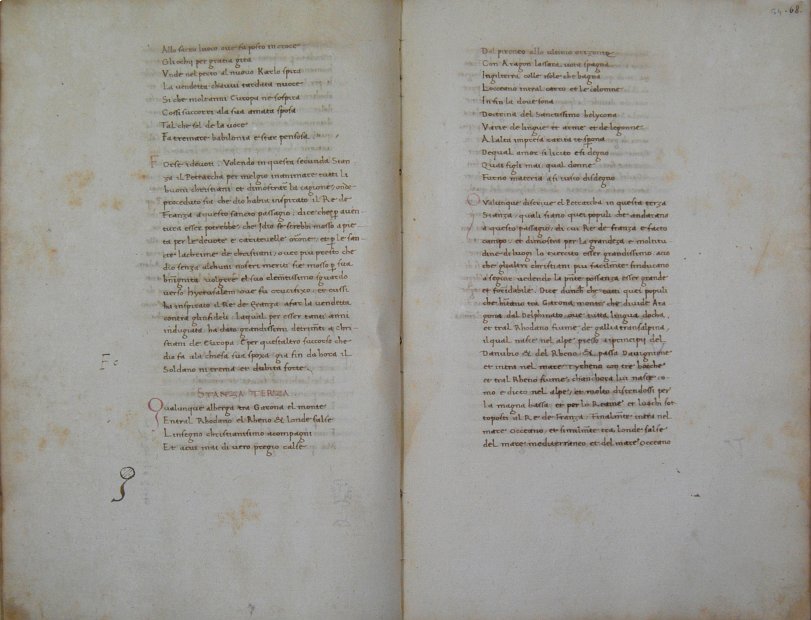 Allo sacro luoco oue fu posto in croce
Gliochi per gratia gira
Vnde nel petto al nuouo Karlo spira
La vendetta chanui tardata nuoce
Si che moltanni Europa ne sospira
Cossi succorri ala sua amata sposa
Tal che sol de la uoce
Fa tremare babilonia e star pensosa.
Forse i deuoti. Volendo in questa secunda Stan
za il Petrarcha per melgio inanimare tutti li
buoni christiani et dimostrar la cagione, onde
proceduto sia che dio habia inspirato il Re de
Franza a questo sancto passagio, dice che per auen
tura esser potrebbe, che Idio se serebbi mosso a pie
ta per le deuote e
cte lachrime de christiani, ouer piu presto che
dio senza alchuni nostri meriti sie mosso per sua
benignita uolgere el suo clementissimo sguardo
uerso Hyerusalem oue fu crucifixo, et cussi
ha inspirato il Re de Franza afar la uendetta
contra glinfideli. laqual per esser tanti anni
indugiata ha data grandissimi detrimenti a chri
stiani de Europa. E per questaltro succorso che
dio fa alla chiesa sua sposa gia fin da hora il
Soldano ni trema et dubita forte.
Fc
STANZA TERZA
Qualunque alberga tra Garona el monte
Entral Rhodano el Rheno et londe salse
Linsegne christianissimo acompagni
Et acui mai di uero pregio calse
54 68.
Dal pireneo allo ultimo orizonte
Con Aragon lassara uota spagna
Ingilterra colle isole che bagna
Loceano intral carro et le colonne
Infin la doue sona
Doctrina del Sanctissimo helycona
Varie de lingue et arme et de le gonne
A laltra impresa carita te sprona
Dequal amor si licito e si degno
Qua figli mai qual donne
Furno materia a si iusto disdegno
Qualunque discriue el Petrarcha in questa terza
Stanza, quali siano quei populi che andarano
a questo passagio, di cui Re de franza e facto
campo, et dimostra per la grandeza et moltitu
dine di luogi lo exercito esser grandissimo acio
che glialtri christiani piu facilmente sinducano
a segure uedendo la possanza esser grande
et formidabile. Dice dunche che tutti quei populi
che habitano tra Garona, monte che diuide Ara
gona dal Delphinato oue tutta lingua docha,
et tral Rhodano fiume de gallia transalpina,
il qual nasce nel alpe presso a principii del
Danubio et del Rheno et passa Dauignione
et intra nel mare tyrheno con tre bocche
et tral Rheno fiume, chanchora lui nasce co
mo e dicto nel alpe, et molto discendossi per
la magna bassa et per lo Reame et luochi sot
toposti al Re de Franza. Finalmente intra nel
mare Occeano, et similmente tra londe salse
del mare mediterraneo et del mare Occeano